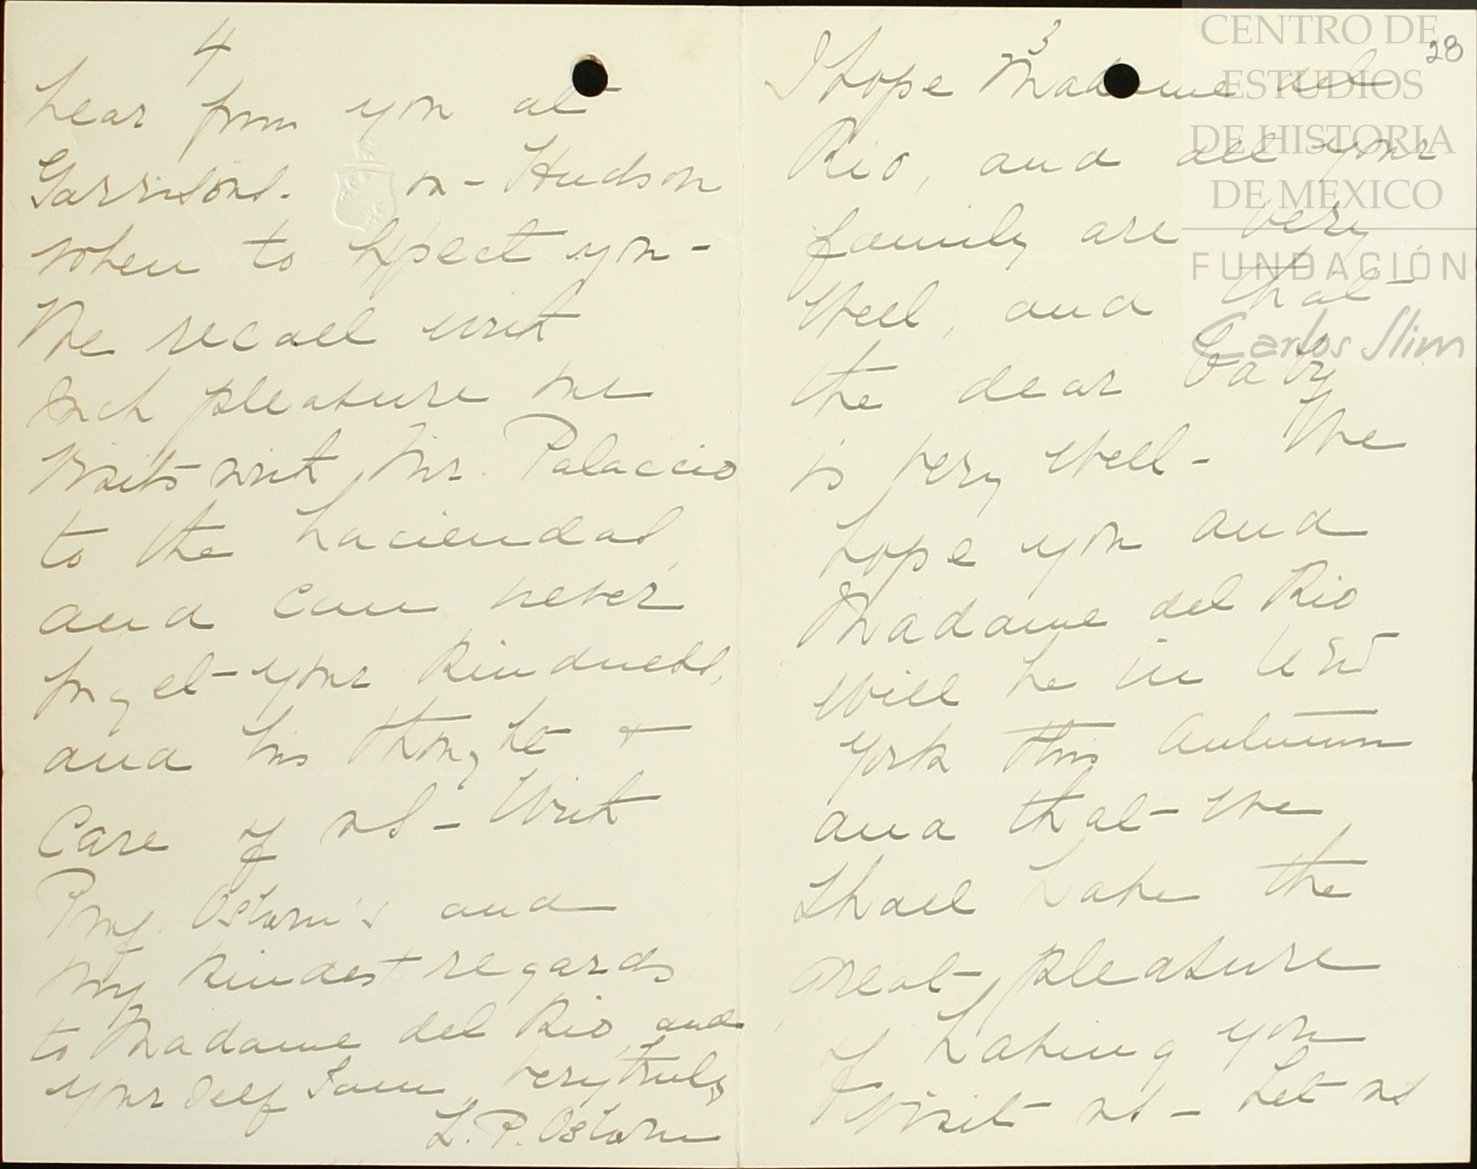 3
28
I hope Madame del
Rio, and all your
family are very
well, and that
the dear baby
is very well - We
hope you and
Madame del Rio
will be in New
York this Autumn
and that we
shall have the
great pleasure
of having you
visit us - Let us
4
hear from you at
Garrisons - on - Hudson
when to expect you -
We recall with
such pleasure our
visits with Mr. Palaccio
to the haciendas,
and can never
forget your kindness,
and his thought +
care of us - With
Prof. Osborn's and
my kindest regards
to Madame del Rio, and
yourself I am very truly
L. P. Osborn
CENTRO DE
ESTUDIOS
DE HISTORIA
DE MEXICO
FUNDACIÓN
Carlos Slim